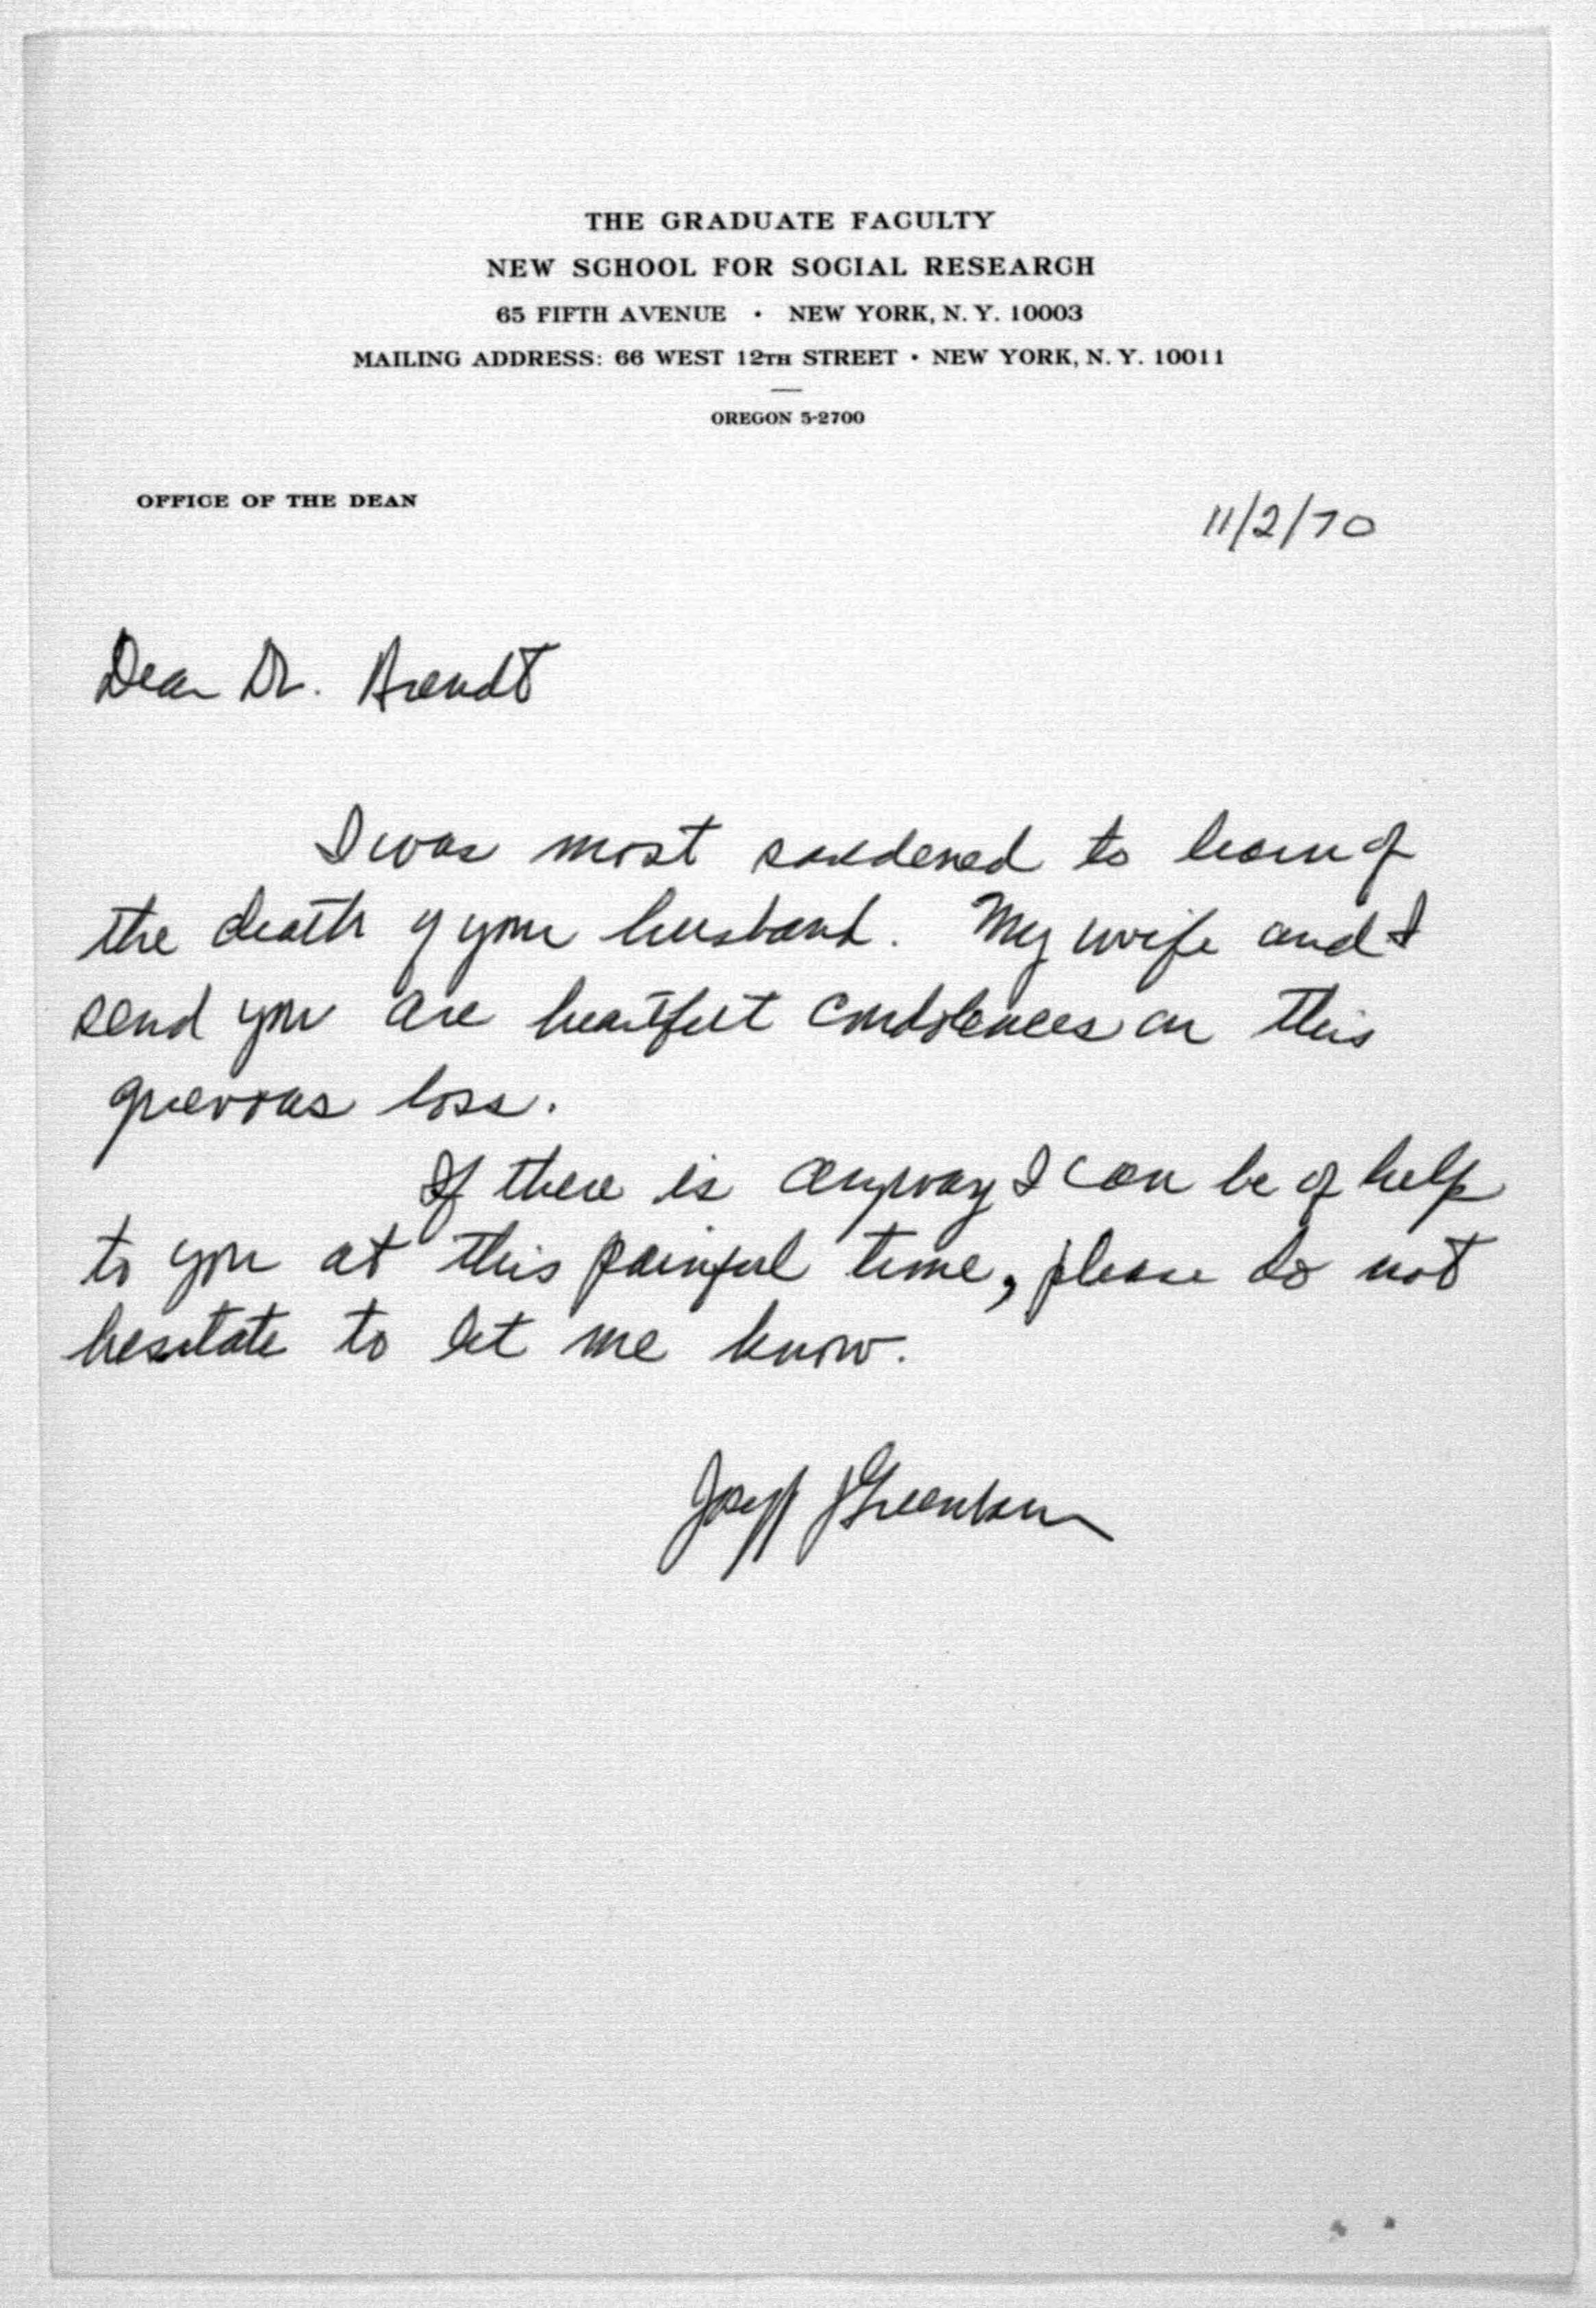 THE GRADUATE FACULTY
NEW SCHOOL FOR SOCIAL RESEARCH
65 FIFTH AVENUE • NEW YORK, N. Y. 10003
MAILING ADDRESS: 66 WEST 12TH STREET • NEW YORK, N. Y. 10011
OREGON 5-2700
OFFICE OF THE DEAN
11/2/70
Dear Dr. Arendt
I was most saddened to learn of
the death of your husband. My wife and I
send you are heartfelt condolences on this
grievous loss.
If there is anyway I can be of help
to you at this painful time, please do not
hesitate to let me know.
Joseph Greenbaum